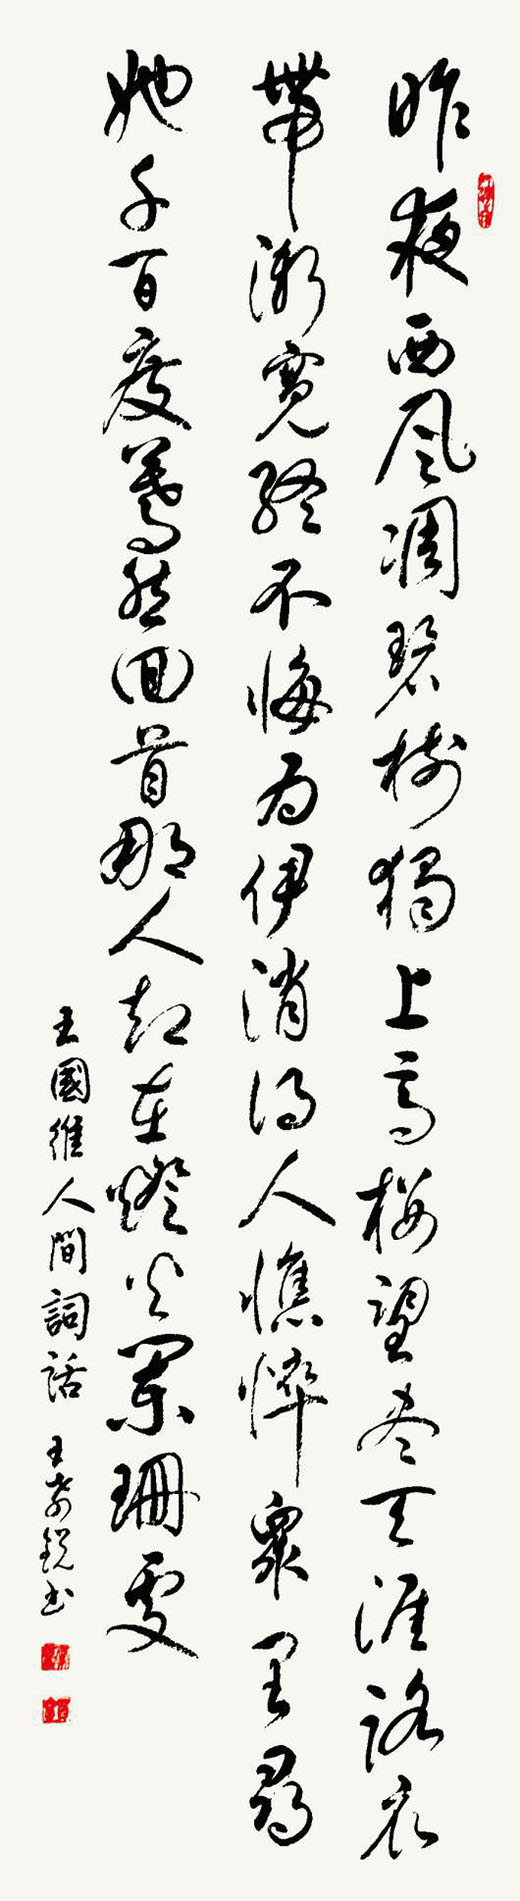 昨夜西風凋碧樹獨上高樓望盡天涯路衣
帶漸寬終不悔為伊消得人憔悴眾里尋
她千百度驀然回首那人却在燈火闌珊處
王國維人間詞話 王銳书